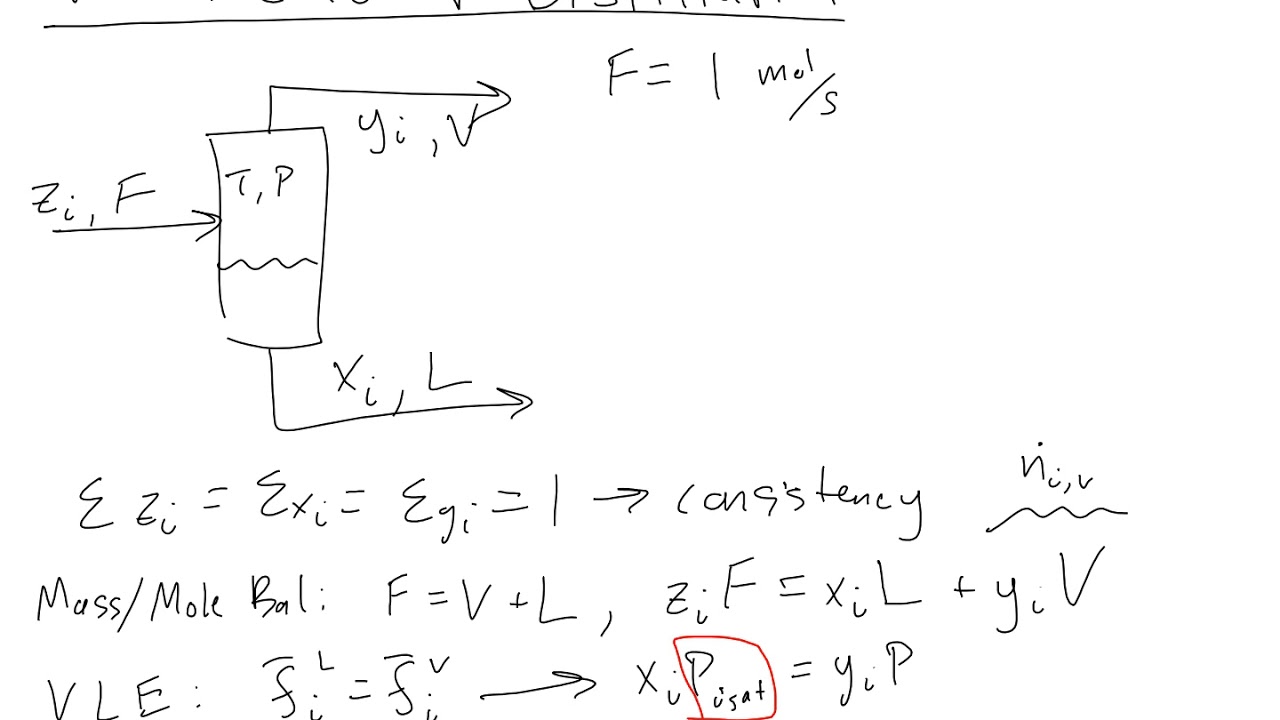 F = 1 mol/s
yi, V
T, P
zi, F
xi, L
Σ zi = Σxi = Σyi = 1 → consistency
ṅi,v
Mass/Mole Bal: F = V + L, ziF = xiL + yiV
VLE: f̄iL = f̄iV → xiPisat = yiP